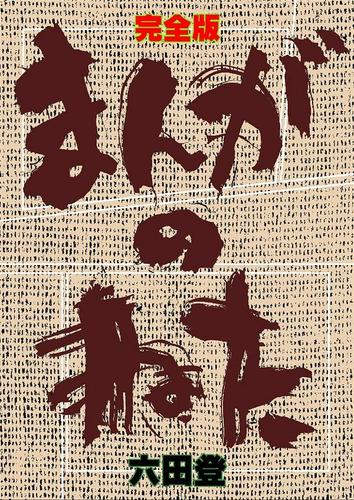 完全版
まんが
の
ねた
六田登